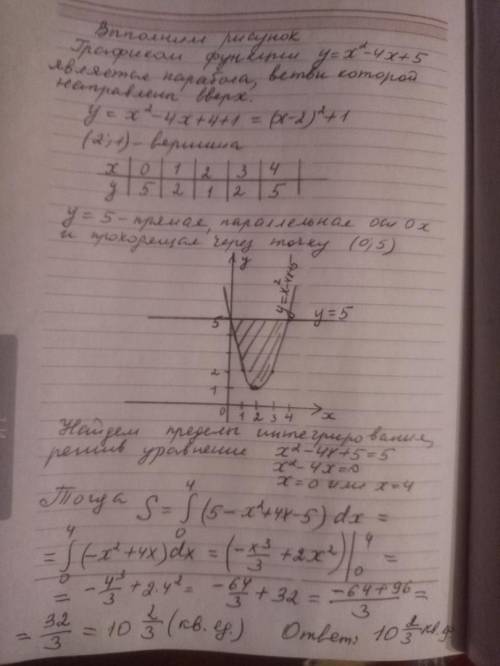 Выполним рисунок
Графиком функции y = x² - 4x + 5
является парабола, ветви которой
направлены вверх.
y = x² - 4x + 4 + 1 = (x - 2)² + 1
(2; 1) - вершина
x | 0 | 1 | 2 | 3 | 4 |
y | 5 | 2 | 1 | 2 | 5 |
y = 5 - прямая, параллельная оси Ox
и проходящая через точку (0; 5)
y
y = x² - 4x + 5
5
y = 5
2
1
0 1 2 3 4 x
Найдем пределы интегрирования,
решив уравнение x² - 4x + 5 = 5
x² - 4x = 0
x = 0 или x = 4
Тогда S = ∫₀⁴ (5 - x² + 4x - 5) dx =
= ∫₀⁴ (-x² + 4x) dx = (-x³/3 + 2x²) |₀⁴ =
= -4³/3 + 2·4² = -64/3 + 32 = (-64 + 96)/3 =
= 32/3 = 10 2/3 (кв. ед.) Ответ: 10 2/3 кв. ед.